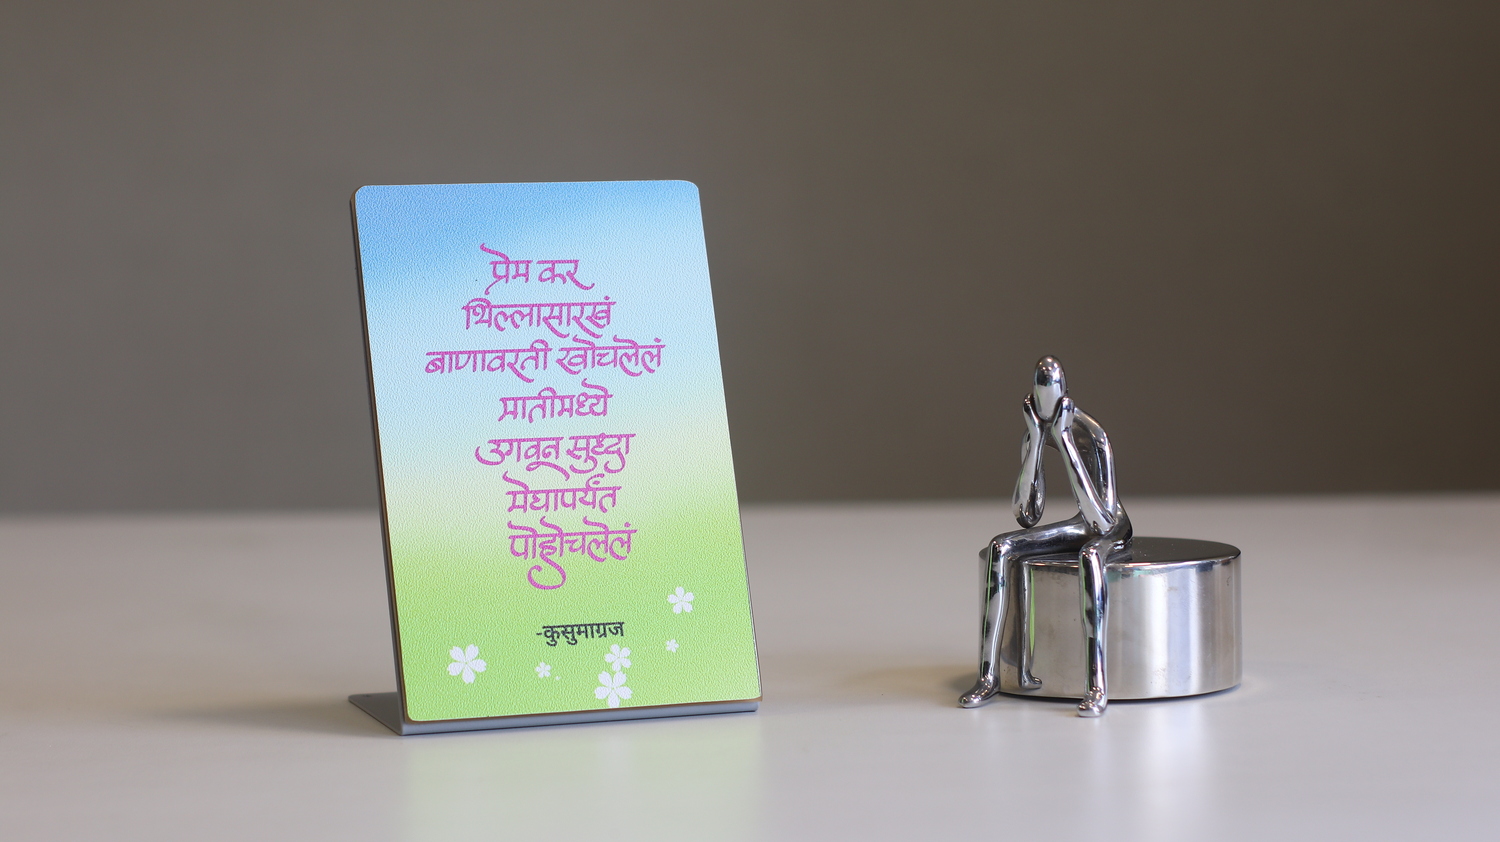 प्रेम कर
भिल्लासारखं
बाणावरती खोचलेलं
मातीमध्ये
उगवून सुध्दा
मेघापर्यंत
पोहोचलेलं
-कुसुमाग्रज